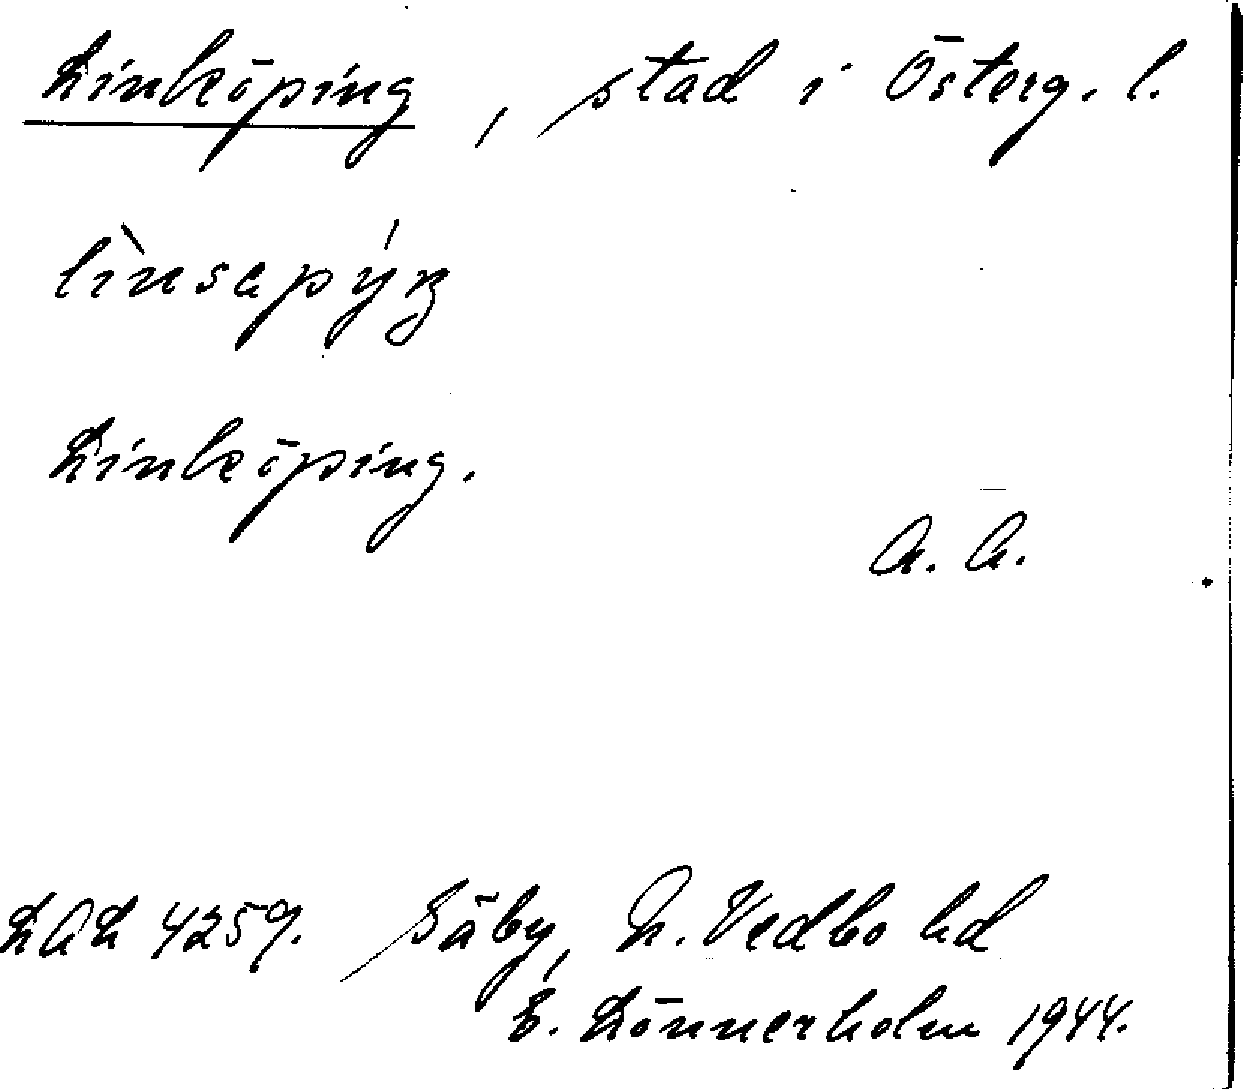 Linköping, stad i Österg. l.
lìnsəpýŋ
Linköping.
A. A.
LAL 4259. Säby, N. Vedbo hd
E. Lönnerholm 1944.